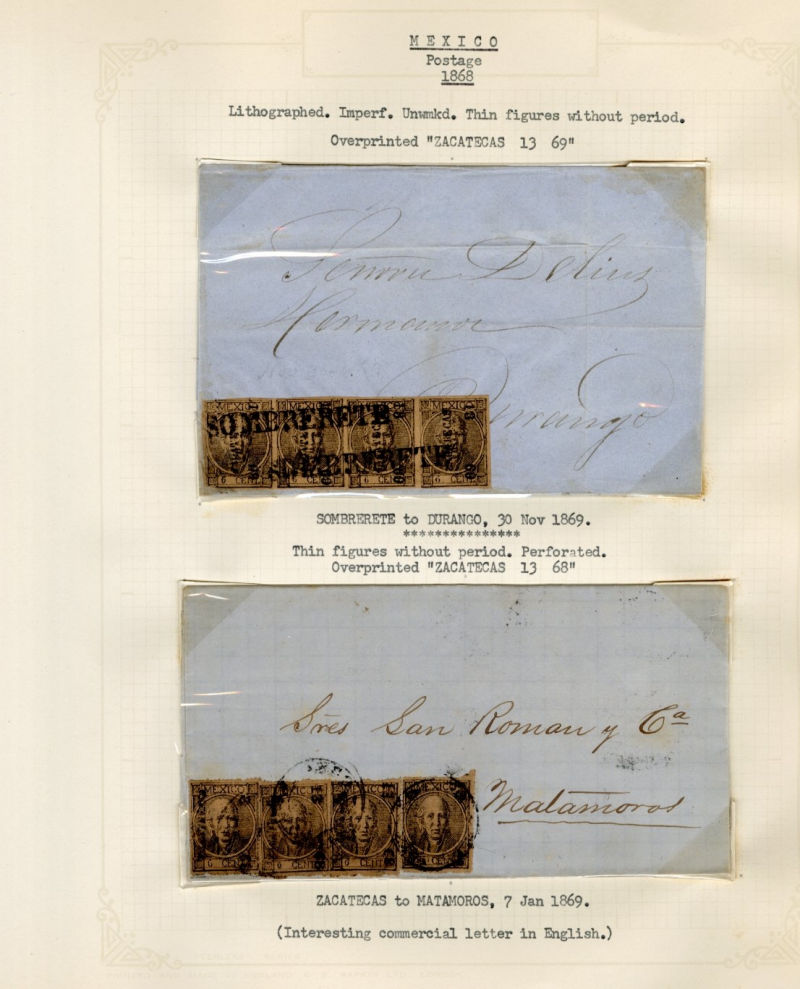 MEXICO
Postage
1868
Lithographed. Imperf. Unwmkd. Thin figures without period.
Overprinted "ZACATECAS 13 69"
Delius
Durango
MEXICO MEXICO MEXICO MEXICO
SOMBRERETE
SOMBRERETE
6 CENT 6 CENT
SOMBRERETE to DURANGO, 30 Nov 1869.
***************
Thin figures without period. Perforated.
Overprinted "ZACATECAS 13 68"
Sres San Roman y Cª
Matamoros
MEXICO MEXICO MEXICO MEXICO
6 CENT
ZACATECAS to MATAMOROS, 7 Jan 1869.
(Interesting commercial letter in English.)